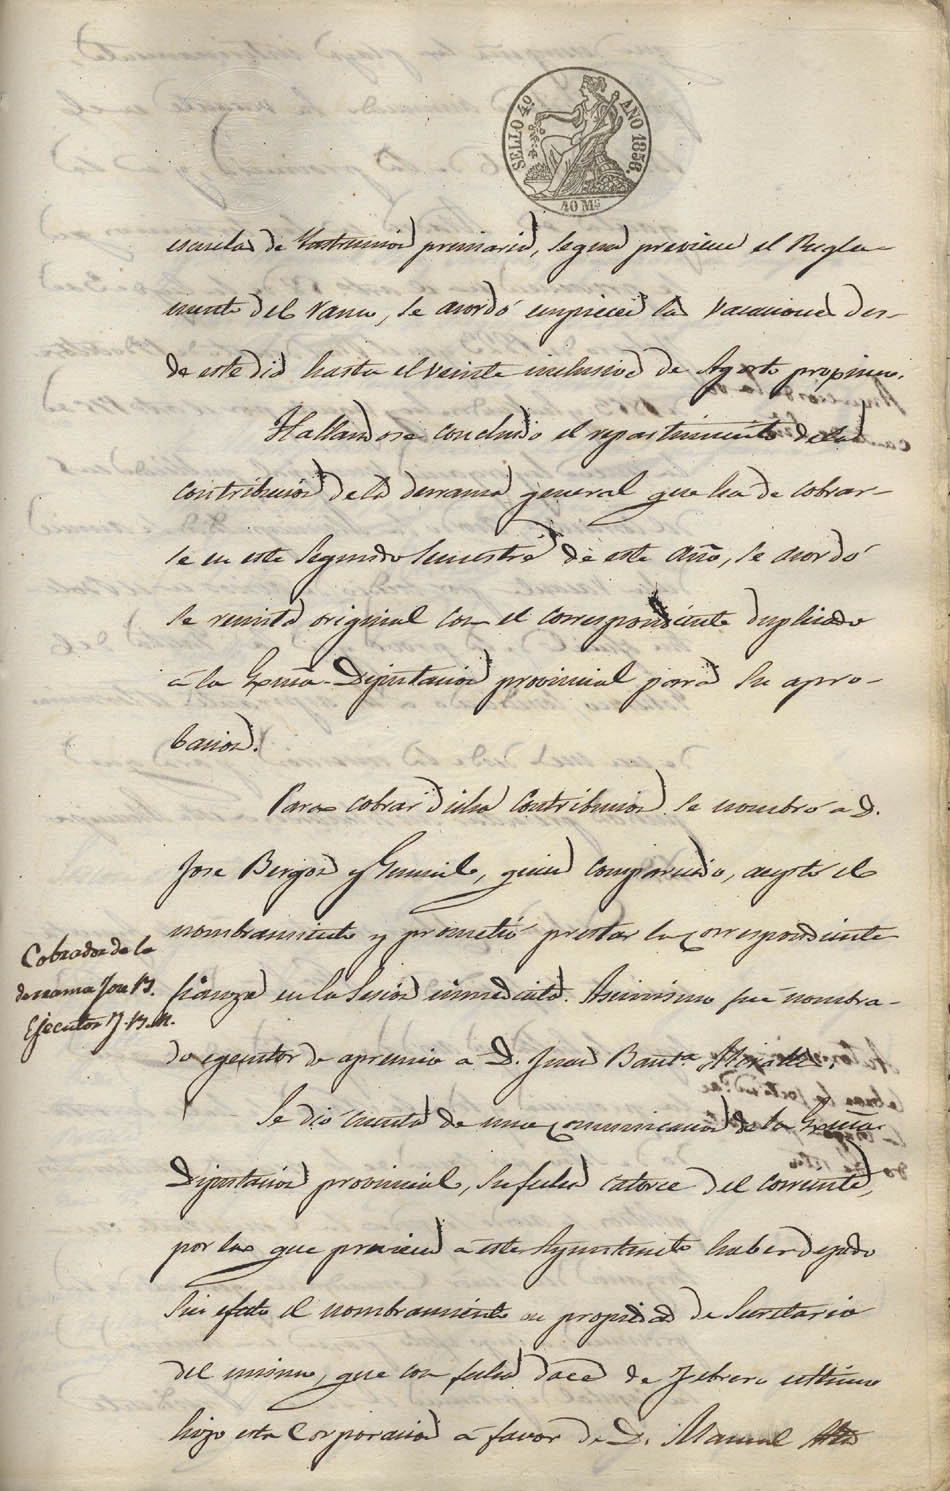 SELLO 4º AÑO 1856.
40 Ms
escuela de Instruccion primaria, segun previene el Regla-
mento del ramo, se acordó empiecen las vacaciones des-
de este dia hasta el veinte inclusive de Agosto propsimo.
Hallandose concluido el repartimiento de la
contribucion de la derrama general que ha de cobrar-
se en este segundo semestre de este año, se acordó
se remita original con el correspondiente duplicado
á la Exma. Diputacion provincial para su apro-
bacion.
Para cobrar dicha contribucion se nombró a D.
Jose Borgos y quien comparecido, aceptó el
nombramiento y prometió prestar la correspondiente
fianza en la sesion inmediata. Asimismo fue nombra-
do egecutor de apremio a D. Juan Bauta. Miralles.
Cobrador de la
derrama Jose B.
Ejecutor J. B. M.
Se dió cuenta de una comunicacion de la Exma.
Diputacion provincial, su fecha catorce del corriente,
por la que previene a este Ayuntamto. haber dejado
sin efecto el nombramiento en propiedad de Secretario
del mismo, que con fecha doce de Febrero ultimo
hizo esta Corporacion a favor de D. Manuel